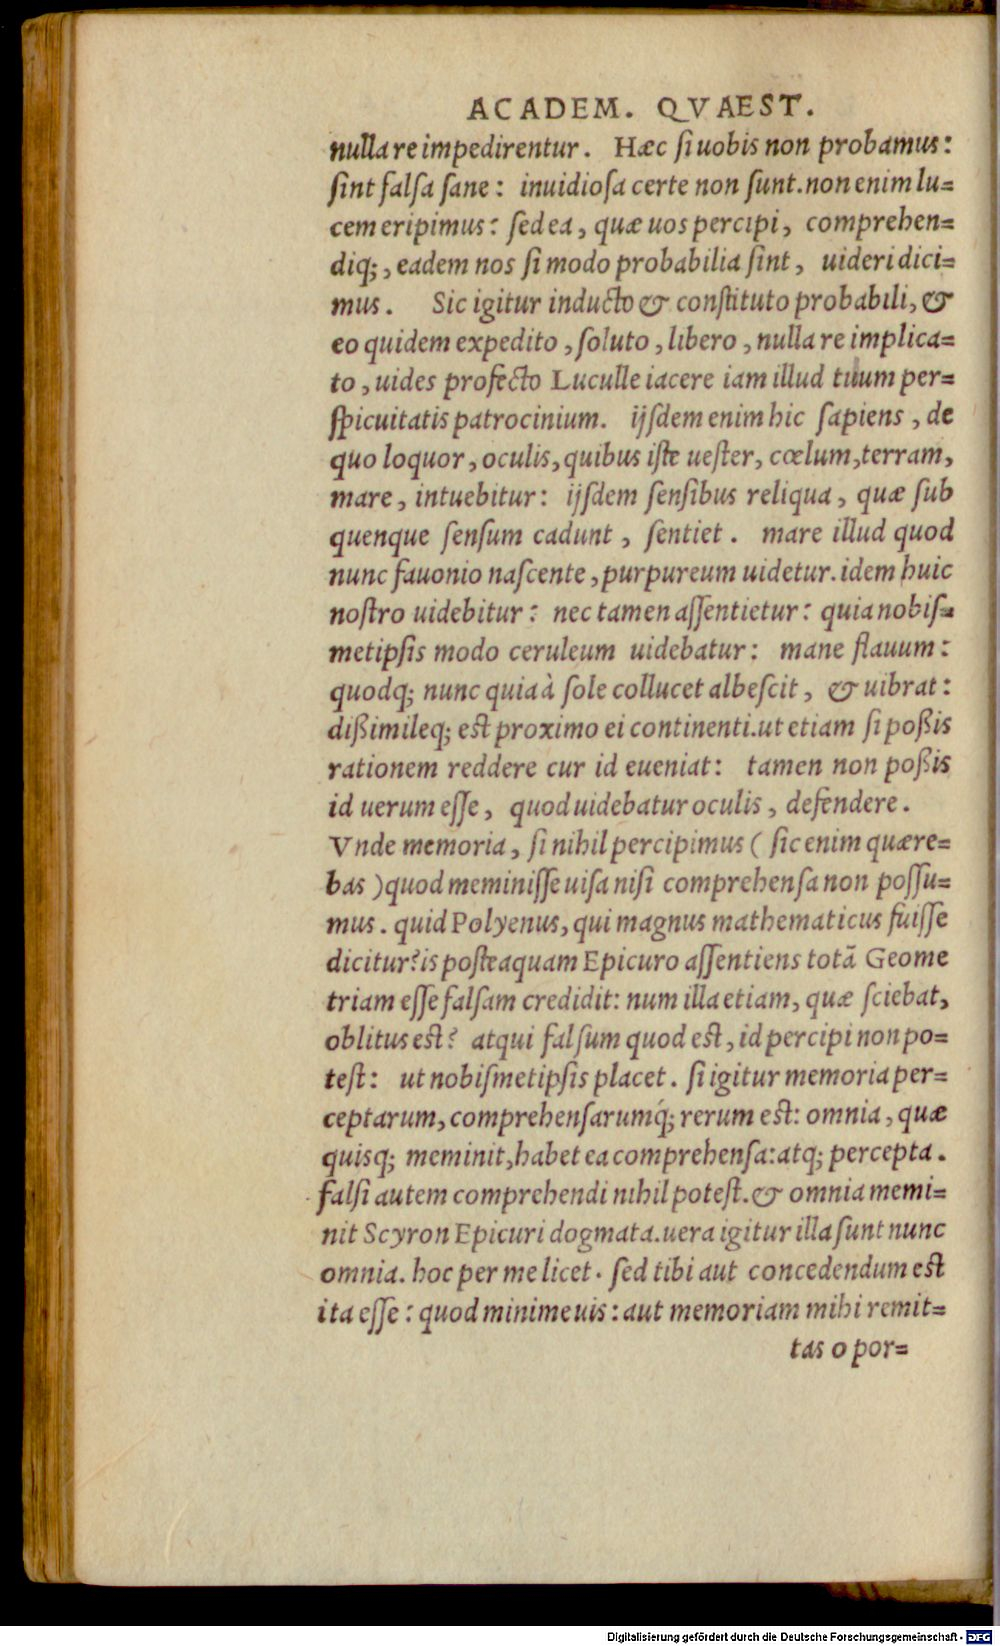 ACADEM. QVAEST.
nulla re impedirentur. Hæc ſi uobis non probamus:
ſint falſa ſane: inuidioſa certe non ſunt. non enim lu=
cem eripimus: ſed ea, quæ uos percipi, comprehen=
diq;, eadem nos ſi modo probabilia ſint, uideri dici=
mus. Sic igitur inducto & conſtituto probabili, &
eo quidem expedito, ſoluto, libero, nulla re implica=
to, uides profecto Luculle iacere iam illud tuum per=
ſpicuitatis patrocinium. ijſdem enim hic ſapiens, de
quo loquor, oculis, quibus iſte ueſter, cœlum, terram,
mare, intuebitur: ijſdem ſenſibus reliqua, quæ ſub
quenque ſenſum cadunt, ſentiet. mare illud quod
nunc fauonio naſcente, purpureum uidetur. idem huic
noſtro uidebitur: nec tamen aſſentietur: quia nobiſ=
metipſis modo ceruleum uidebatur: mane flauum:
quodq; nunc quia à ſole collucet albeſcit, & uibrat:
dißimileq; eſt proximo ei continenti. ut etiam ſi poßis
rationem reddere cur id eueniat: tamen non poßis
id uerum eſſe, quod uidebatur oculis, defendere.
Vnde memoria, ſi nihil percipimus ( ſic enim quære=
bas ) quod meminiſſe uiſa niſi comprehenſa non poſſu=
mus. quid Polyenus, qui magnus mathematicus fuiſſe
dicitur? is poſteaquam Epicuro aſſentiens totã Geome
triam eſſe falſam credidit: num illa etiam, quæ ſciebat,
oblitus eſt? atqui falſum quod eſt, id percipi non po=
teſt: ut nobiſmetipſis placet. ſi igitur memoria per=
ceptarum, comprehenſarumq́; rerum eſt: omnia, quæ
quisq; meminit, habet ea comprehenſa: atq; percepta.
falſi autem comprehendi nihil poteſt. & omnia memi=
nit Scyron Epicuri dogmata. uera igitur illa ſunt nunc
omnia. hoc per me licet. ſed tibi aut concedendum eſt
ita eſſe: quod minime uis: aut memoriam mihi remit=
tas opor=
Digitalisierung gefördert durch die Deutsche Forschungsgemeinschaft - DFG